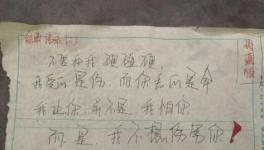 不要和我硬碰硬
我受的是伤，而你丢的是命
我让你，并不是我怕你
而是，我不想伤害你！